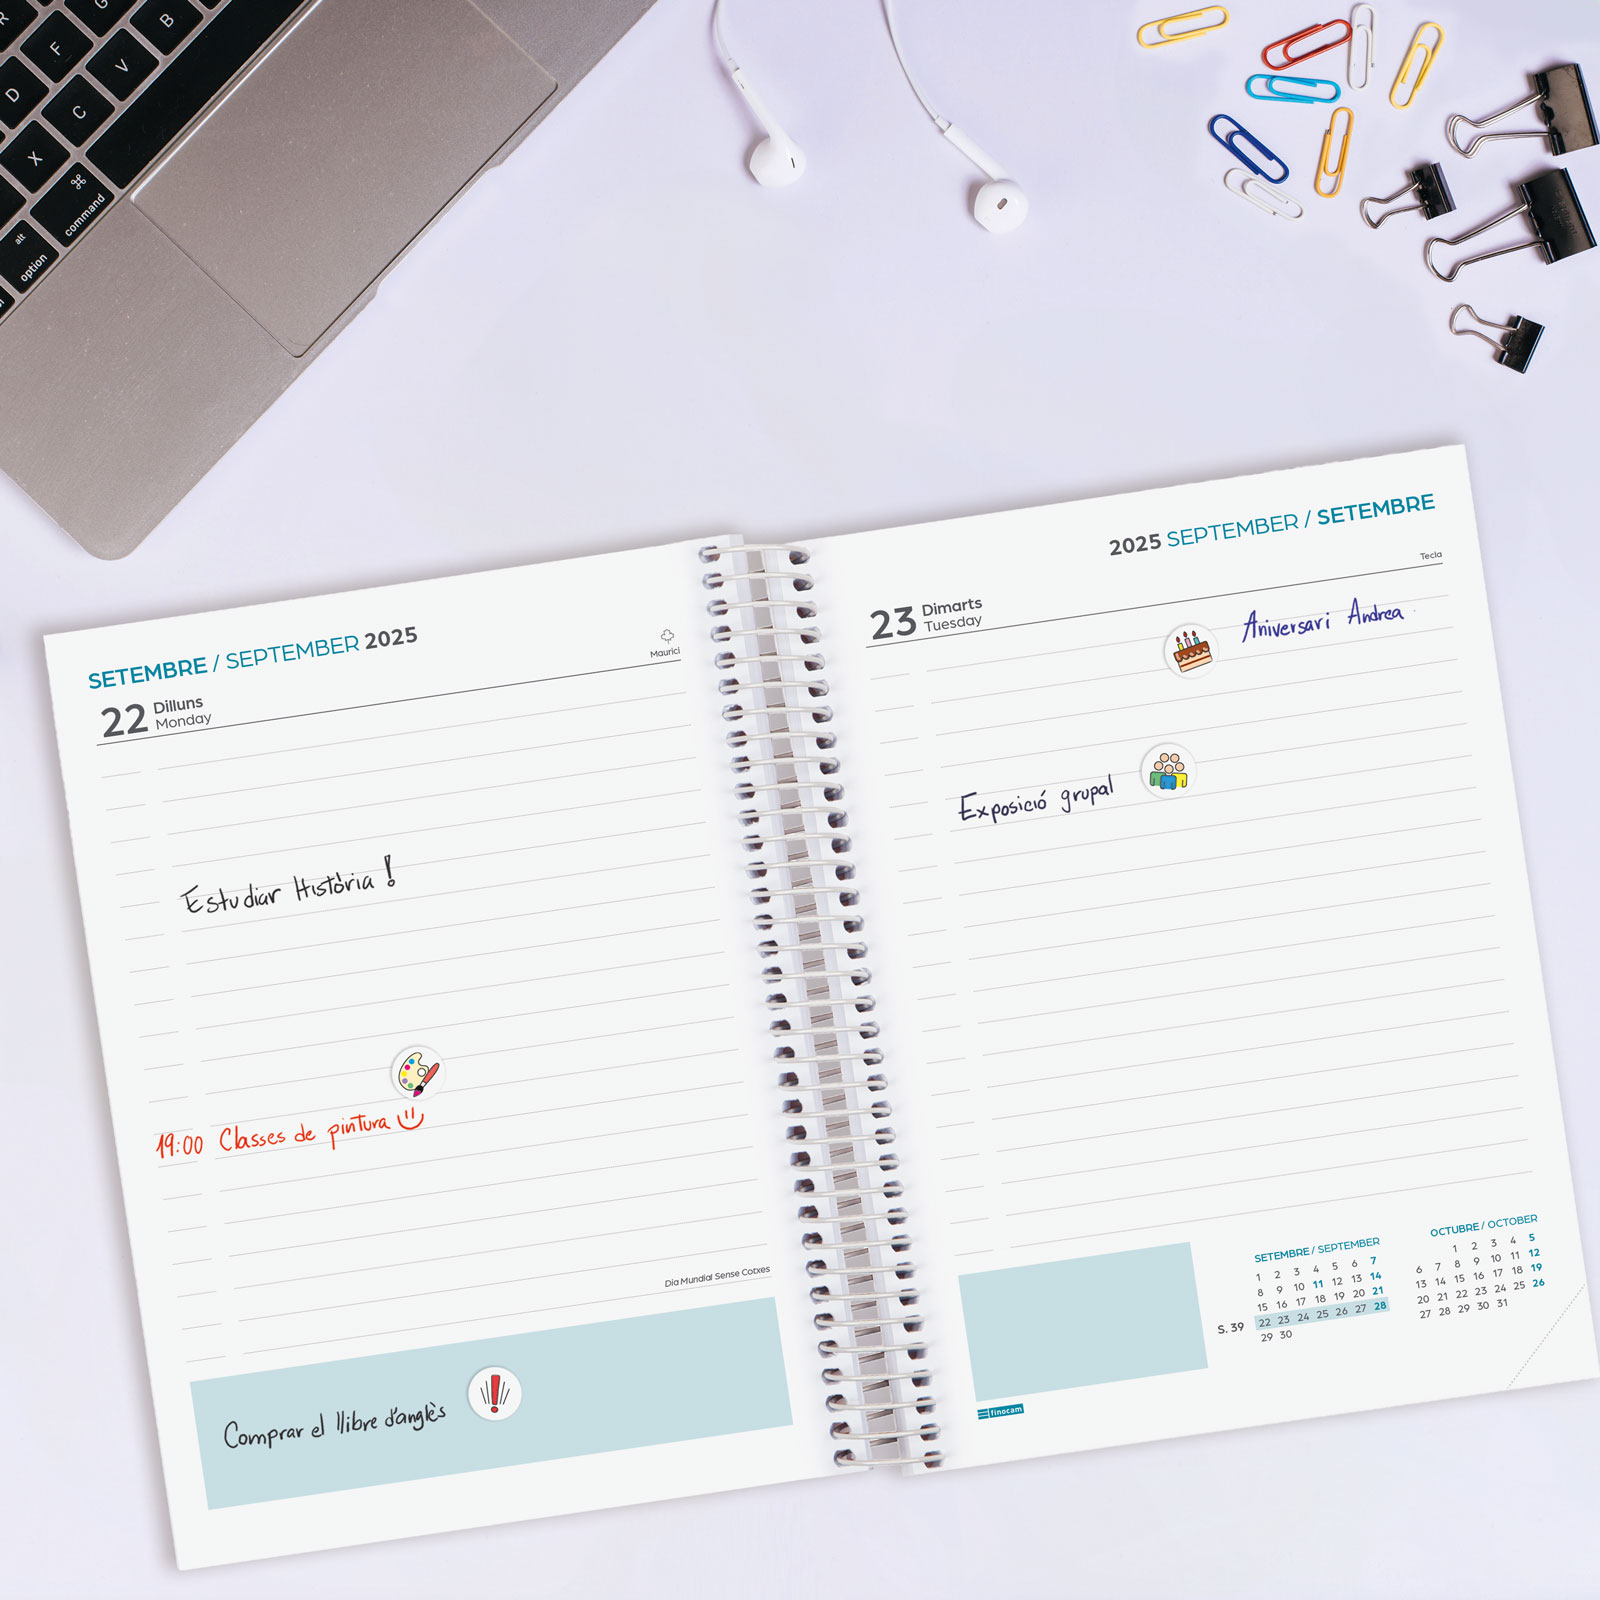 R
F
G
B
D
V
C
X
⌘
command
alt
option
SETEMBRE / SEPTEMBER 2025
Maurici
22 Dilluns
Monday
Estudiar Història !
19:00 Classes de pintura
Dia Mundial Sense Cotxes
Comprar el llibre d'anglès
2025 SEPTEMBER / SETEMBRE
Tecla
23 Dimarts
Tuesday
Aniversari Andrea
Exposició grupal
SETEMBRE / SEPTEMBER
1 2 3 4 5 6 7
8 9 10 11 12 13 14
15 16 17 18 19 20 21
S. 39 22 23 24 25 26 27 28
29 30
OCTUBRE / OCTOBER
1 2 3 4 5
6 7 8 9 10 11 12
13 14 15 16 17 18 19
20 21 22 23 24 25 26
27 28 29 30 31
finocam